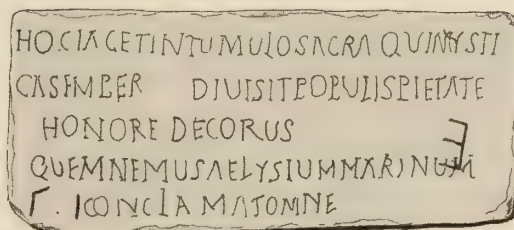 HO.CIACETINTUMULOSACRA QUIMYSTI
CASEMPER DIUISITPOPULISPIETATE
HONORE DECORUS
QUEMNEMUSAELYSIUMMARINUM
Γ. ICONCLAMATOMNE